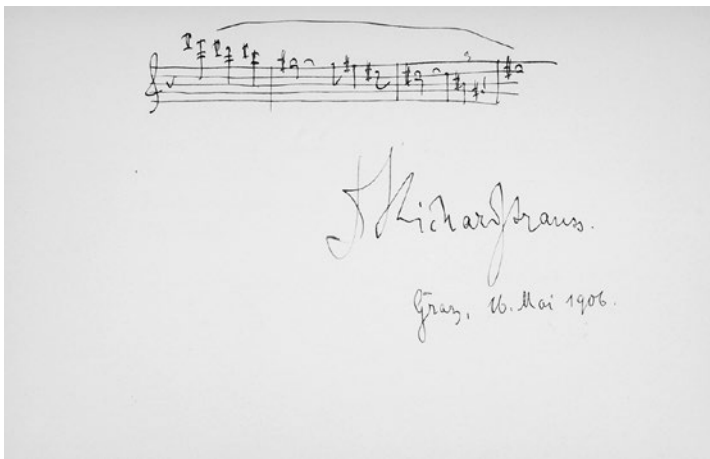 Richard Strauss.
Graz, 16. Mai 1906.